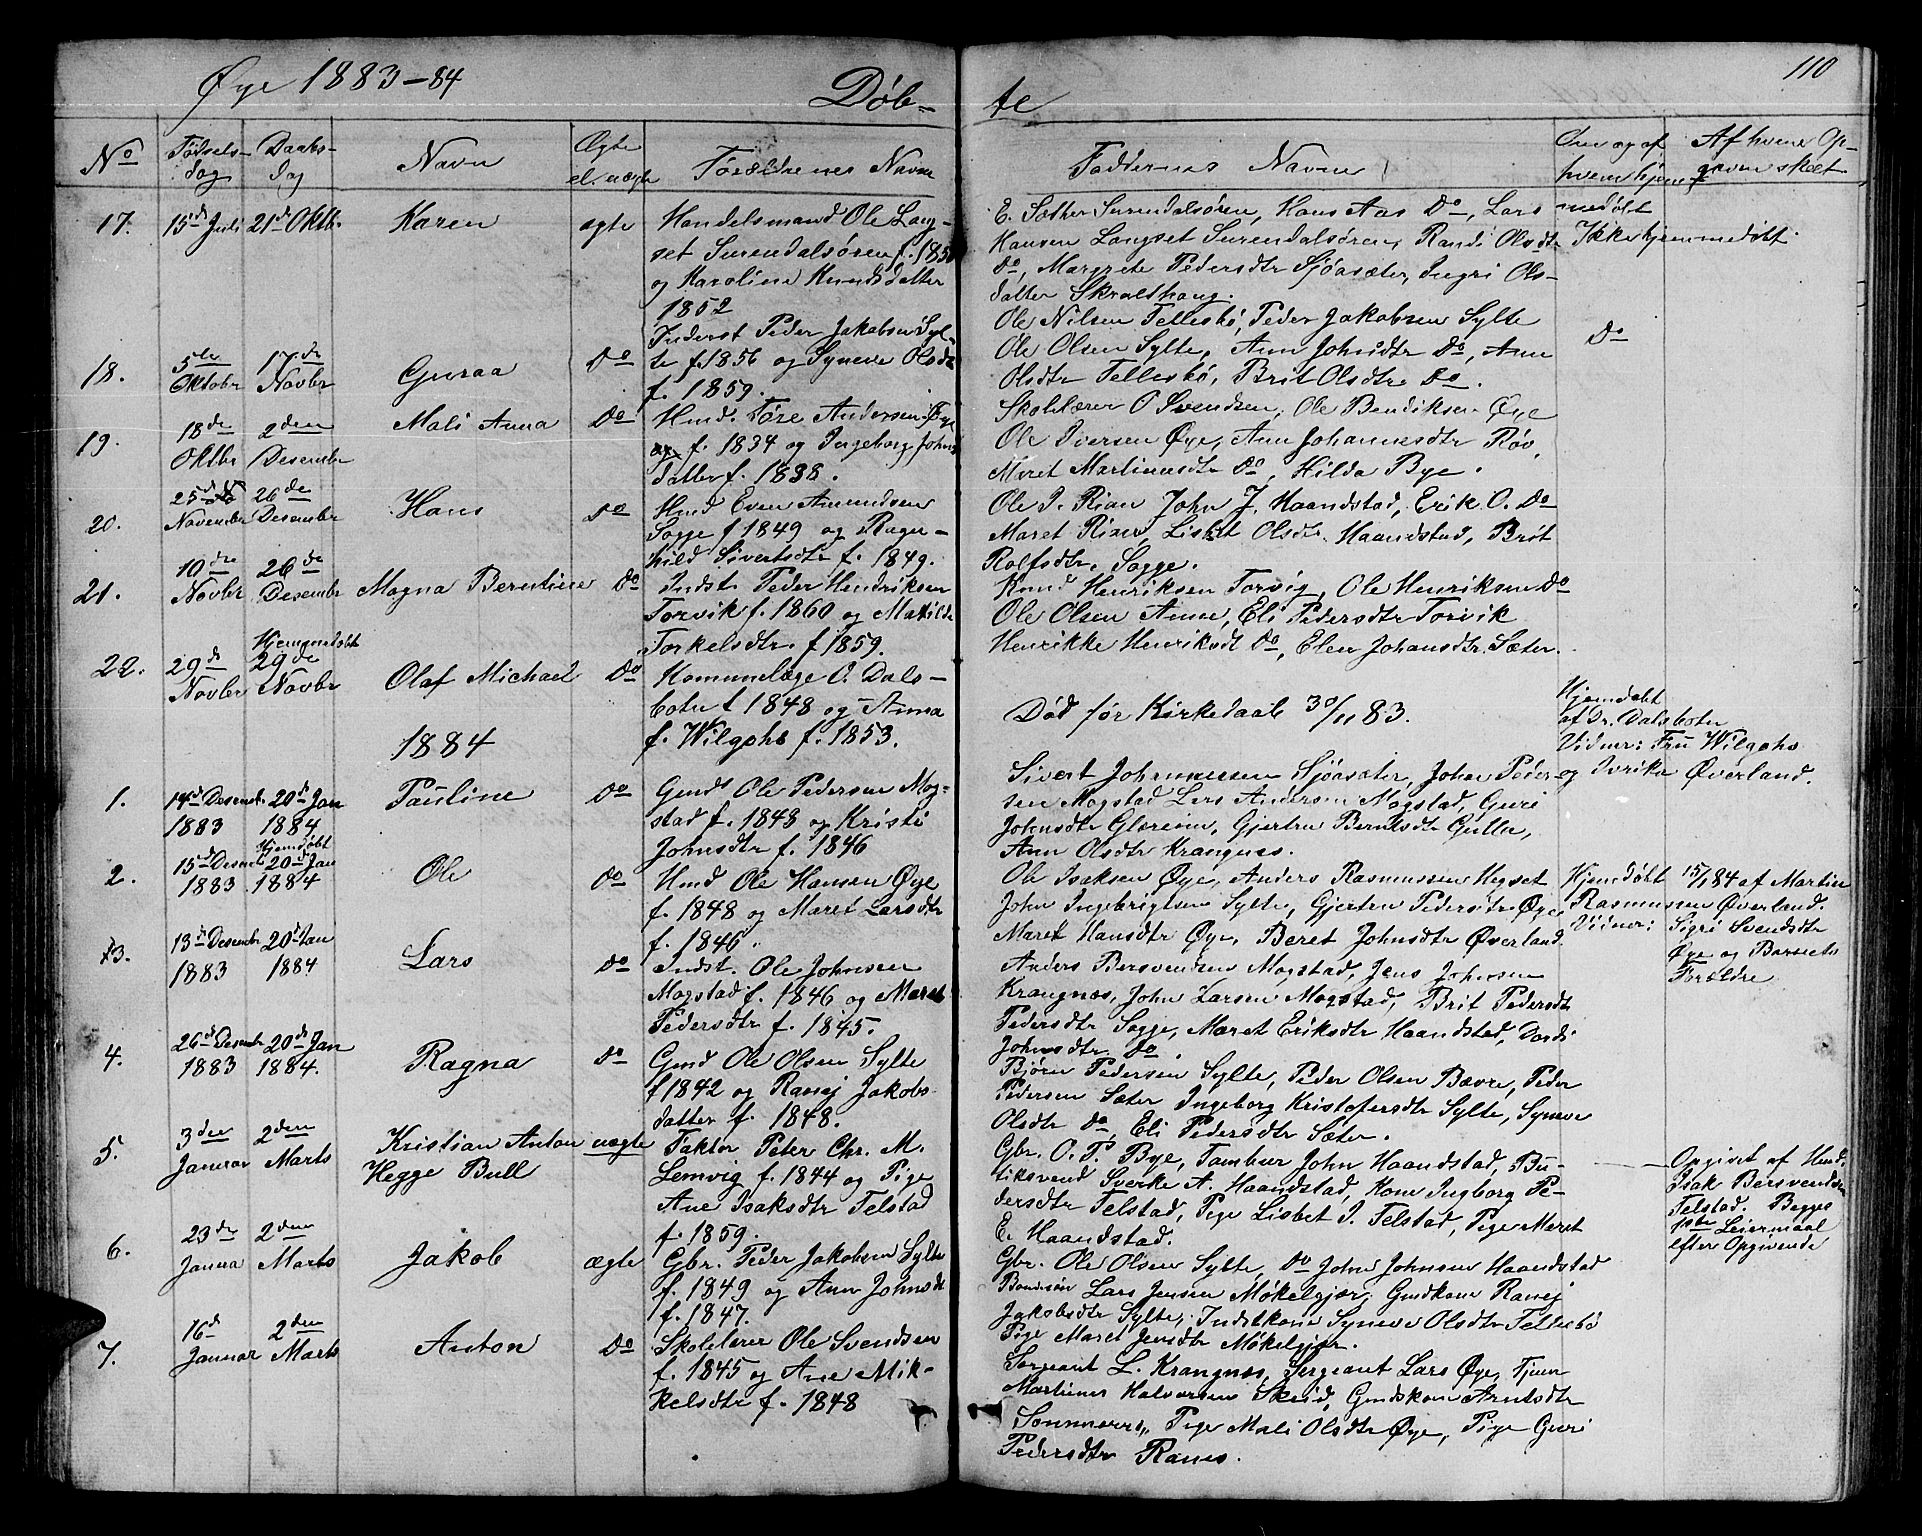 Øye 1883-84
Døb-
te
110
No
Fødsels-
dag
Daabs-
dag
Navn
Ægte
el. uægte
Forældrenes Navn
Faddernes Navne
Om og af
hvem hjem-
Af hvem Op-
gaven skeet
17.
15de Juli
21de Oktbr.
Karen
ægte
Handelsmand Ole Lang-
set Surendalsøren f. 1850
og Karoline Knudsdatter
1852
E. Sæther Surendalsøren, Hans Aas Do, Lars
Hansen Langset Surendalsøren, Randi Olsdtr
Do, Margrete Pedersdtr Sjøasæter, Ingri Ols-
datter Skralthaug.
medøbt
Ikke hjemmedøbt
18.
5te
Oktober
17de
Novbr
Guraa
Do
Inderst Peder Jakobsen Syl-
te f 1856 og Synneve Olsdtr
f. 1859.
Ole Nilsen Tellesbø, Peder Jakobsen Sylte
Ole Olsen Sylte, Ann Johnsdtr Do, Ane
Olsdtr Tellesbø, Brit Olsdtr Do.
Do
19.
18de
Oktbr
2den
Desember
Mali Anna
Do
Hmd. Tøre Andersen Øye
f. 1834 og Ingeborg Johns
datter f. 1838.
Skolelærer O Svendsen, Ole Bendiksen Øye
Ole Iversen Øye, Ann Johannesdtr Røv,
Maret Martinusdtr Do, Hilda Bye.
20.
25de
November
26de
Desember
Hans
Do
Hmd Even Amundsen
Sogge f 1849 og Ragn-
hild Sivertsdtr f. 1849.
Ole I. Rian John J. Haandstad, Erik O. Do
Maret Rian, Lisbet Olsdtr Haandstad, Brøt
Rolfsdtr, Sogge.
21.
10de
Novbr
26de
Desembr
Magna Berntine
Do
Indst. Peder Hendriksen
Torvik f. 1860 og Mathilde
Torkelsdtr. f 1859.
Knud Henriksen Torvig, Ole Henriksen Do
Ole Olsen Anne, Eli Pedersdtr Torvik
Henrikke Henriksdt Do, Elen Johansdtr Sæter.
22.
29de
Novbr
Hjemmedøbt
29de
Novbr
Olaf Michael
Do
Komunelæge O. Dals-
botn f 1848 og Anna
f. Wilgohs f. 1853.
Død før Kirkedaab 30/11 83.
Hjemdøbt
af Dr. Dalsbotn
Vidner: Fru Wilgohs
og Ivrika Øverland.
1884
1.
14de Desembr
1883
20de Jan
1884
Pauline
Do
Gmd Ole Pedersen Mog-
stad f. 1848 og Kristi
Johnsdtr f. 1846
Sivert Johannessen Sjøasæter, John Peder-
sen Mogstad Lars Andersen Mogstad, Guri
Johnsdtr Glærum, Gjertru Berntsdtr Gulla,
Ann Olsdtr Krangnes.
2.
15de Desembr
1883
Hjemdøbt
20de Jan
1884
Ole
Do
Hmd Ole Hansen Øye
f. 1848 og Maret Larsdtr
f. 1846.
Ole Isaksen Øye, Anders Rasmussen Hegset
John Ingebrigtsen Sylte, Gjertru Pedersdtr Øye
Maret Hansdtr Øye, Beret Johnsdtr Øverland.
Hjemdøbt 15/1 84 af Martin
Rasmussen Øverland.
Vidner: Sigri Svendsdtr
Øye og Barnets
Forældre
3.
13de Desembr
1883
20de Jan
1884
Lars
Do
Indst. Ole Johnsen
Mogstad f. 1846 og Maret
Pedersdtr f. 1845.
Anders Bersvendsen Mogstad, Jens Johnsen
Krangnæs, John Larsen Mogstad, Brit Pedersdtr
Pedersdtr Sogge, Maret Eriksdtr Haandstad, Dordi
Johnsdtr Do.
4.
26de Desembr
1883
20de Jan
1884.
Ragna
Do
Gmd Ole Olsen Sylte
f 1842 og Ranej Jakobs-
datter f. 1848.
Bjørn Pedersen Sylte, Peder Olsen Bævre, Peder
Pedersen Sæter Ingeborg Kristofersdtr Sylte, Synneve
Olsdtr Do, Eli Pedersdtr Sæter.
5.
3den
Januar
2den
Marts
Kristian Anton
Hegge Bull
uægte
Faktor Peter Chr. M.
Lemvig f. 1844 og Pige
Ane Isaksdtr Telstad
f. 1859.
Gbr. O. P. Bye, Tambur John Haandstad, Bu-
tiksvend Sverke A. Haandstad, Kone Ingborg Pe-
dersdtr Telstad, Pige Lisbet I. Telstad, Pige Maret
E. Haandstad.
Opgivet af Hmd.
Isak Bersvendsen
Telstad. Begges
1ste Leiermaal
efter Opgivende
6.
23de
Janua
2den
Marts
Jakob
ægte
Gbr. Peder Jakobsen Sylte
f. 1849 og Ann Johnsdt
f. 1847.
Gbr. Ole Olsen Sylte, Do John Johnsen Haandstad
Bondesøn Lars Jensen Møkelgjær, Gmdkone Ranej
Jakobsdtr Sylte, Indstkone Synneve Olsdtr Tellesbø
Pige Maret Jensdtr Møkelgjær.
7.
16de
Januar
2den
Marts
Anton
Do
Skolelærer Ole Svendsen
f. 1845 og Ane Mik-
kelsdtr f. 1848
Sergeant L. Krangnes, Sergeant Lars Øye, Tjener
Martinus Halvorsen Skeid, Gmdskone Arntsdtr
Sommerro, Pige Mali Olsdtr Øye, Pige Guri
Pedersdtr Ranes.